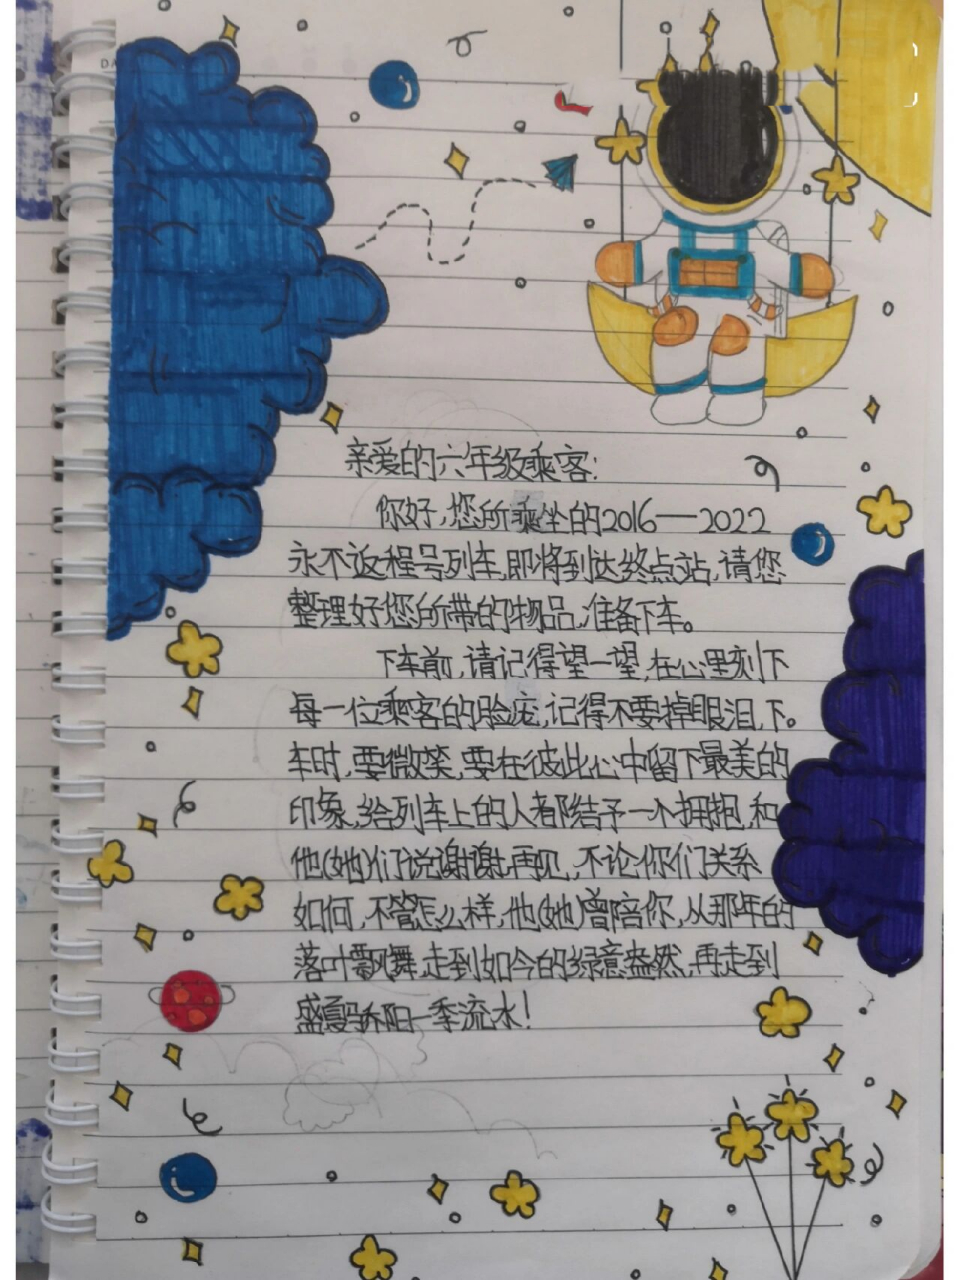 DA
亲爱的六年级乘客:
你好,您所乘坐的2016——2022
永不返程号列车,即将到达终点站,请您
整理好您所带的物品,准备下车。
下车前,请记得望一望,在心里刻下
每一位乘客的脸庞,记得不要掉眼泪,下。
车时,要微笑,要在彼此心中留下最美的
印象,给列车上的人都给予一个拥抱,和
他(她)们说谢谢,再见,不论你们关系
如何,不管怎么样,他(她)曾陪你,从那年的
落叶飘舞,走到如今的绿意盎然,再走到
盛夏骄阳一季流水!